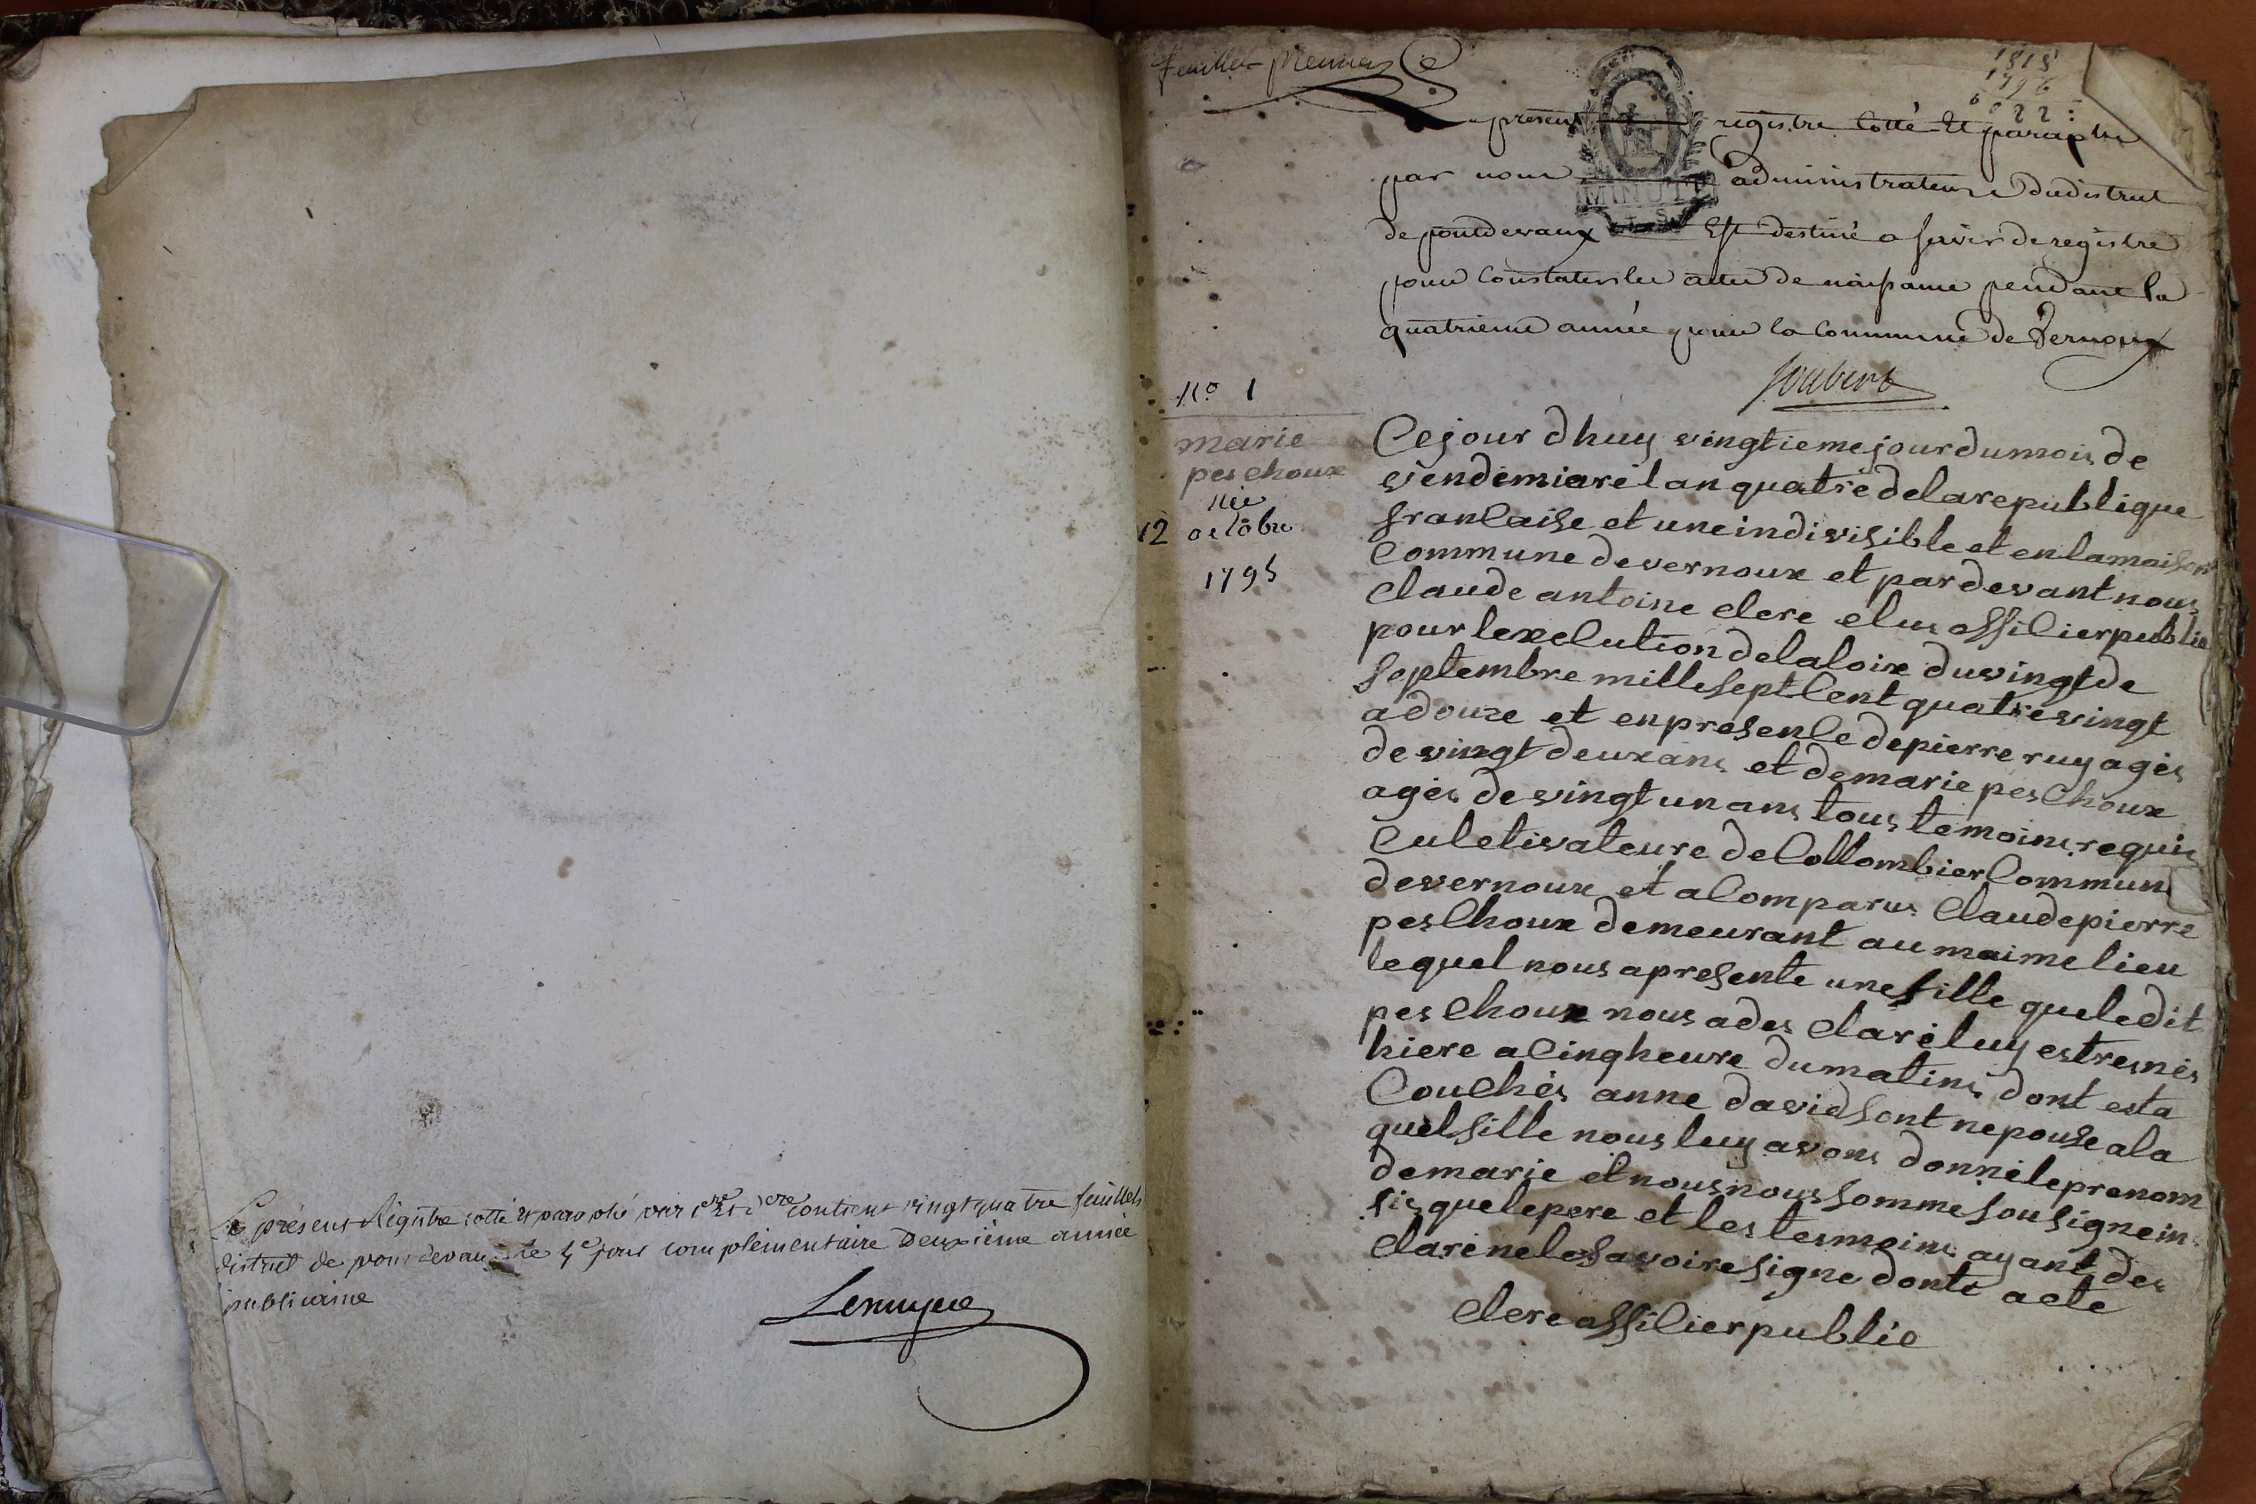 Le présent Régistre cotté et paraphé par 1ere et dere contient vingt quatre feuillets
district de pont devaux le 4e jour complémentaire Deuxième année
publicaine
Feuillet Premier
1815
1796
6022:
Le present registre Cotté Et paraphé
par nous administrateur du district
de pontdevaux Est destiné a servir de registre
pour Constater les actes de naissance pendant la
quatrieme année pour la Commune de Vernoux
Joubert
MINUTE
No 1
marie
peschoux
née
12 octobre
1795
Ce jour dhuy vingtieme jour du mois de
vendemiare lan quatre de la republique
francaise et une indivisible et en la maison
Commune de vernoux et par devant nous
Claude antoine clere elus offilier public
pour lexelution de la loix du vingt de
septembre mille sept Cent quatre vingt
a douze et en presenle de pierre ruy agés
de vingt deux ans et de marie pesChoux
agés de vingt un ans tous temoins requis
Culetivateure de Collombier Commun
de vernoux et a Comparus Claude pierre
pesChoux demeurant au maime lieu
le quel nous a presente une fille que le dit
pesChoux nous a des Claré luy estre nés
hiere a Cinq heure du matins dont est a
CouChés anne david sont nepouse a la
quel fille nous luy avons donné le prenom
de marie et nous nous somme sousigne in
sis que le pere et les tesmoins ayant des
Claré ne le savoire signe dont acte
Clere offilier public